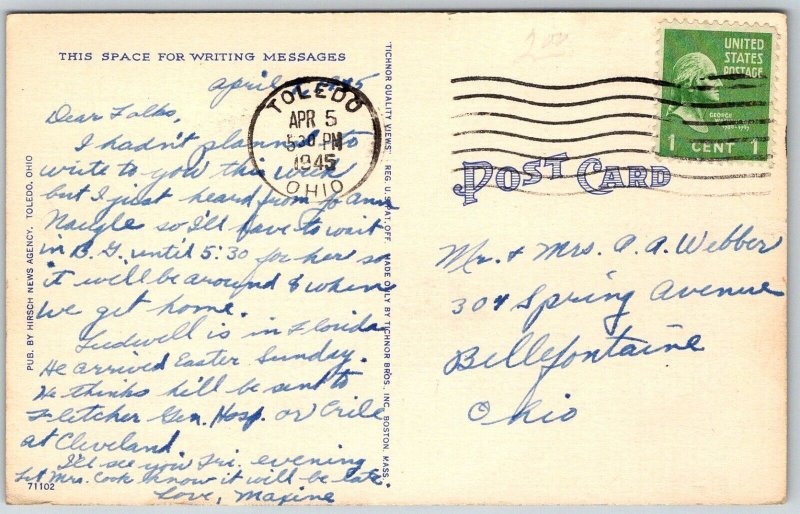 THIS SPACE FOR WRITING MESSAGES
April
Dear Folks,
I hadn't planned to
write to you this week
but I just heard from Jo Ann
Naegle so I'll have to wait
in B.G. until 5:30 for her so
it will be around 8 when
we get home.
Ludwell is in Florida
He arrived Easter Sunday.
He thinks he'll be sent to
Fletcher Gen. Hosp. or Crile
at Cleveland.
I'll see you Fri. evening
Let Mrs. Cook know it will be late
Love, Maxine
71102
PUB. BY HIRSCH NEWS AGENCY, TOLEDO, OHIO
"TICHNOR QUALITY VIEWS" REG. U. S. PAT. OFF. MADE ONLY BY TICHNOR BROS., INC. BOSTON, MASS.
TOLEDO
APR 5
5 30 PM
1945
OHIO
UNITED
STATES
POSTAGE
GEORGE
1 CENT 1
POST CARD
Mr. & Mrs. A. A. Webber
304 Spring Avenue
Bellefontaine
Ohio